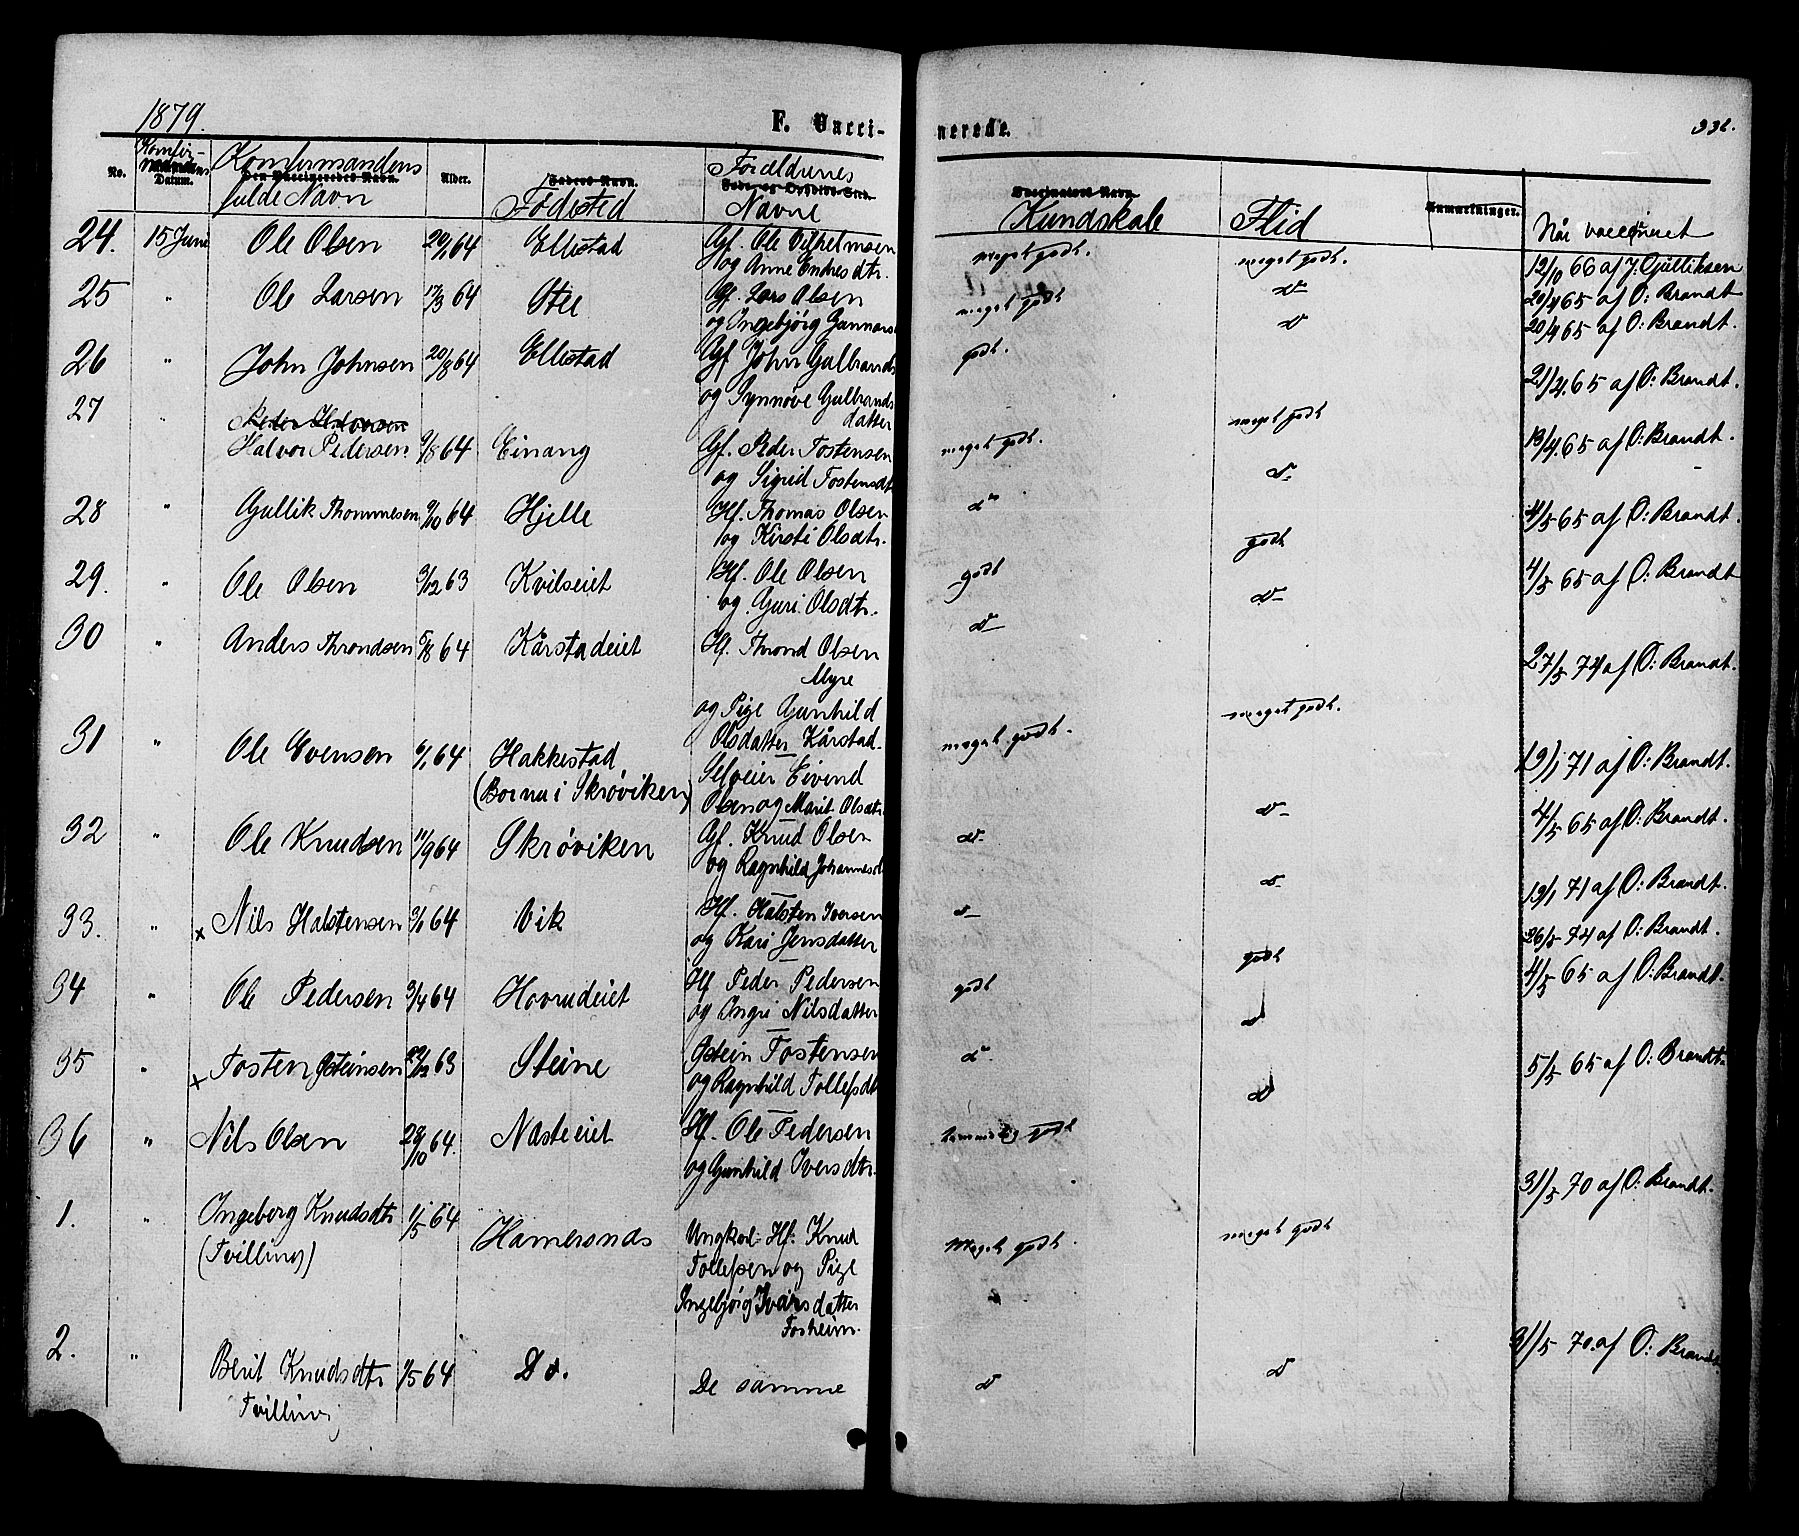 1879.
F. Vacci-
nerede.
332.
No.
Datum.
Konfermandens
Den Vaccineredes Navn.
fulde Navn
Alder.
Faders Navn.
Fødested
Forældrenes
Navne
Vaccinators Navn.
Kundskab
Flid
Anmærkninger.
Når vaccineret
24. 15 Juni Ole Olsen 20/1 64 Ellestad Gf. Ole Vilhelmsen meget godt. meget godt. 12/10 66 af J. Gulliksen
og Anne Endresdtr.
25 " Ole Larsen 17/3 64 Stee Gf. Lars Olsen meget godt do 20/4 65 af O: Brandt
og Ingebjörg Gunnars
26 " John Johnsen 20/8 64 Ellestad Gf. John Gulbrands godt. do 20/4 65 af O: Brandt.
og Synnöve Gulbrands
datter
27 " Peder Halvorsen
Halvor Pedersen 9/8 64 Einang Gf. Peder Tostensen meget godt. meget godt 21/4 65 af O: Brandt.
og Sigrid Tostensdt
28 " Gullik Thommesen 9/10 64 Hjelle Hf. Thomas Olsen do do 13/4 65 af O: Brandt.
og Kirsti Olsdtr.
29. " Ole Olsen 3/12 63 Kvilseiet Hf. Ole Olsen godt godt 4/5 65 af O: Brandt.
og Guri Olsdtr.
30 " Anders Throndsen 5/8 64 Kårstadeiet Hf. Thrond Olsen do do 4/5 65 af O: Brandt
Myre
og Pige Gunhild
Olsdatter Kårstad.
31 " Ole Evensen 6/1 64 Hakkestad Selveier Eivend meget godt. meget godt. 27/5 74 af O: Brandt.
(Bor nu i Skrøviken) Olsen og Marit Olsdtr
32 " Ole Knudsen 11/9 64 Skrøviken Gf. Knud Olsen do do 19/1 71 af O: Brandt.
og Ragnhild Johannesd
4/5 65 af O: Brandt.
33. " x Nils Halstensen 3/1 64 Vik Hf. Halsten Iversen do do 19/1 71 af O: Brandt.
og Kari Jensdatter
26/5 74 af O: Brandt.
34 " Ole Pedersen 3/4 64 Hovrudeiet Hf Peder Pedersen godt godt 4/5 65 af O: Brandt.
og Ingri Nilsdatter
35 " x Tosten Østeinsen 29/12 63 Steine Østein Tostensen do do
og Ragnhild Tollefsdt
36 " Nils Olsen 29/10 64. Næsteeiet Hf. Ole Pedersen godt do 5/5 65 af O: Brandt.
og Gunhild Iversdtr.
1. " Ingeborg Knudsdtr 11/5 64 Hamersnds Ungkarl Hf: Knud Meget godt meget godt 31/5 70 af O: Brandt.
(Tvilling) Tollefsen og Pige
Ingebjörg Ivarsdatter
Fosheim.
2. " Berit Knudsdtr 11/5 64 Do. De samme do do 31/5 70. af O: Brandt
Tvilling